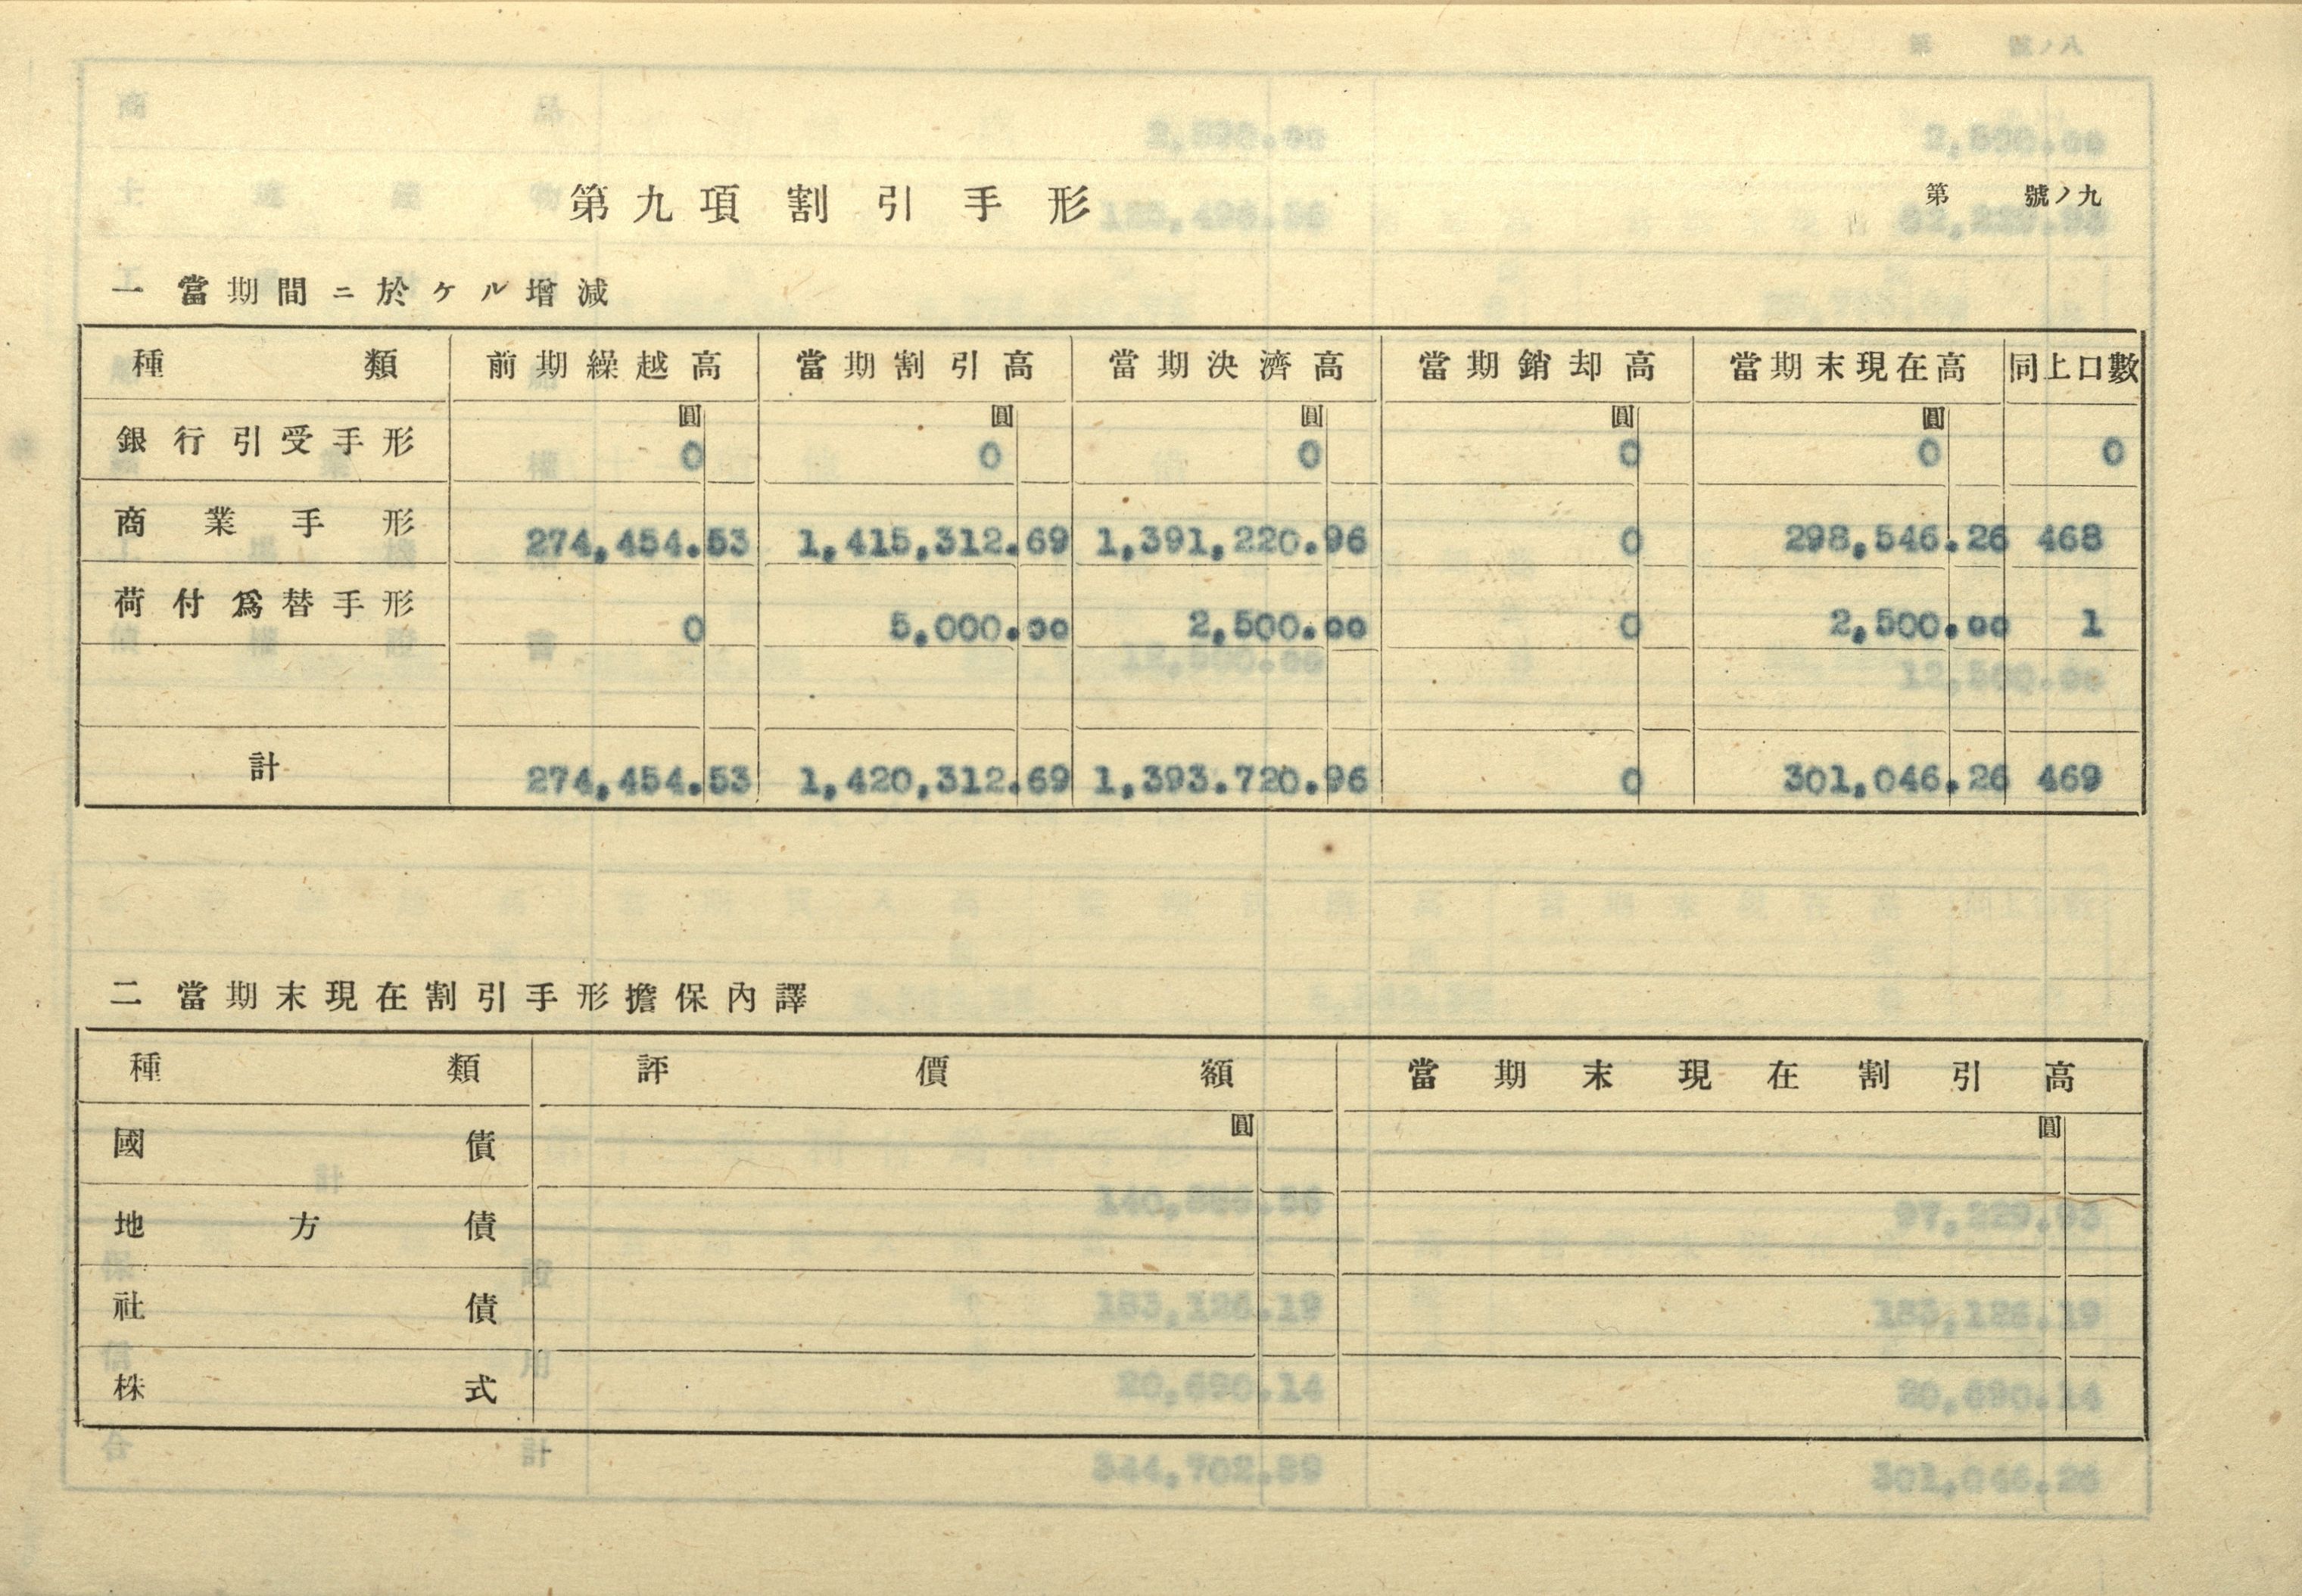 第九項 割引手形
第 號ノ九
一 當期間ニ於ケル增減
種類 前期繰越高 當期割引高 當期決濟高 當期銷却高 當期末現在高 同上口數
圓 圓 圓 圓 圓
銀行引受手形 0 0 0 0 0 0
商業手形 274,454.53 1,415,312.69 1,391,220.96 0 298,546.26 468
荷付爲替手形 0 5,000.00 2,500.00 0 2,500.00 1
計 274,454.53 1,420,312.69 1,393.720.96 0 301,046.26 469
二 當期末現在割引手形擔保內譯
種類 評價額 當期末現在割引高
圓 圓
國債
地方債
社債
株式